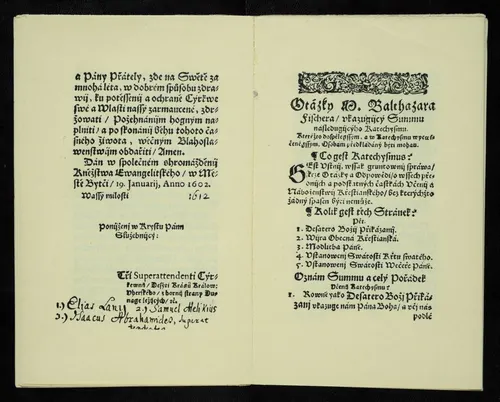 a Pány Přátely, zde na Swětě za
mnohá léta, w dobrém spůsobu zdra-
wij, ku potěssenij a ochraně Cyrkwe
swé a Wlasti nassy zarmaucené, zdr-
žowati / Požehnánijm hogným na-
plniti / a po skonánij běhu tohoto čas-
ného žiwota, wěčným Blahosla-
wenstwijm obdařiti / Amen.
Dán w společném shromáždění
Kněžstwa Evangelitského / w Mě-
stě Bytči / 19. Januarij, Anno 1602.
Wassy milosti 1612
Ponijženij w Krystu Pánu
Služebnijcy:
Tři Superattendenti Cýr-
kewnij / Desýti Králow.
Vherského / z horní strany Du-
nage ležých / zl.
1.) Elias Lanij 2.) Samuel Melikius
3.) Isaacus Abrahamides,
Otázky M. Balthazara
Fischera / vkazugijcý Summu
následugijcýho Katechysmu.
Kteréž dospělegssým, a w Katechysmu wycwi-
čenegssým, Osobám předkládány býti mohau.
Co gest Katechysmus?
GEst Vstnij, wssak gruntownij spráwa /
skrze Otázky a Odpowědi / o wssech před-
nijch a podstatných částkách Včenij a
Nábožen stwij Křestianského / bez kterýchžto
žádný spasen býti nemůže.
Kolik gest těch Stránek?
Pět.
1. Desatero Božij Přikázanij.
2. Wijra Obecná Křestianská.
3. Modlitba Páně.
4. Vstanowenij Swátosti Křtu swatého.
5. Vstanowenij Swátosti Wečeře Páně.
Oznám Summu a celý Pořádek
Včenij Katechysmu?
1. Rowně jako Desatero Božj Přiká-
zanj vkazuge nám Pána Boha / a wěj nás
podlé